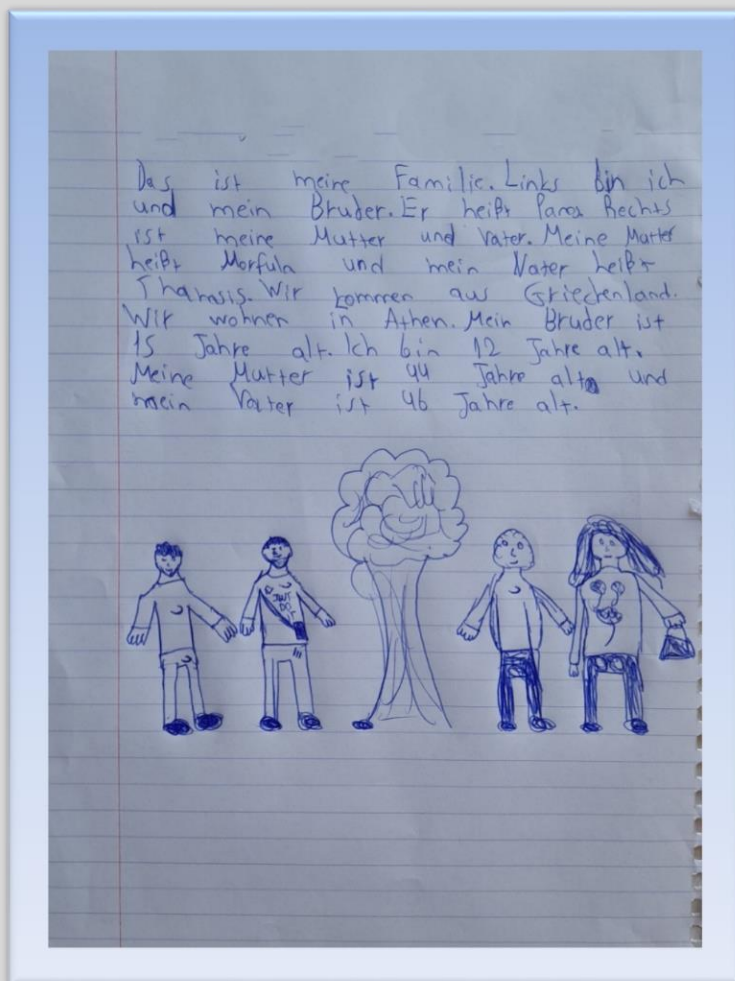 Das ist meine Familie. Links bin ich
und mein Bruder. Er heißt Panos Rechts
ist meine Mutter und Vater. Meine Mutter
heißt und mein Vater heißt
Wir kommen aus Griechenland.
Wir wohnen in Athen. Mein Bruder ist
15 Jahre alt. Ich bin 12 Jahre alt.
Meine Mutter ist 44 Jahre alt und
mein Vater ist 46 Jahre alt.
JUST
DO IT